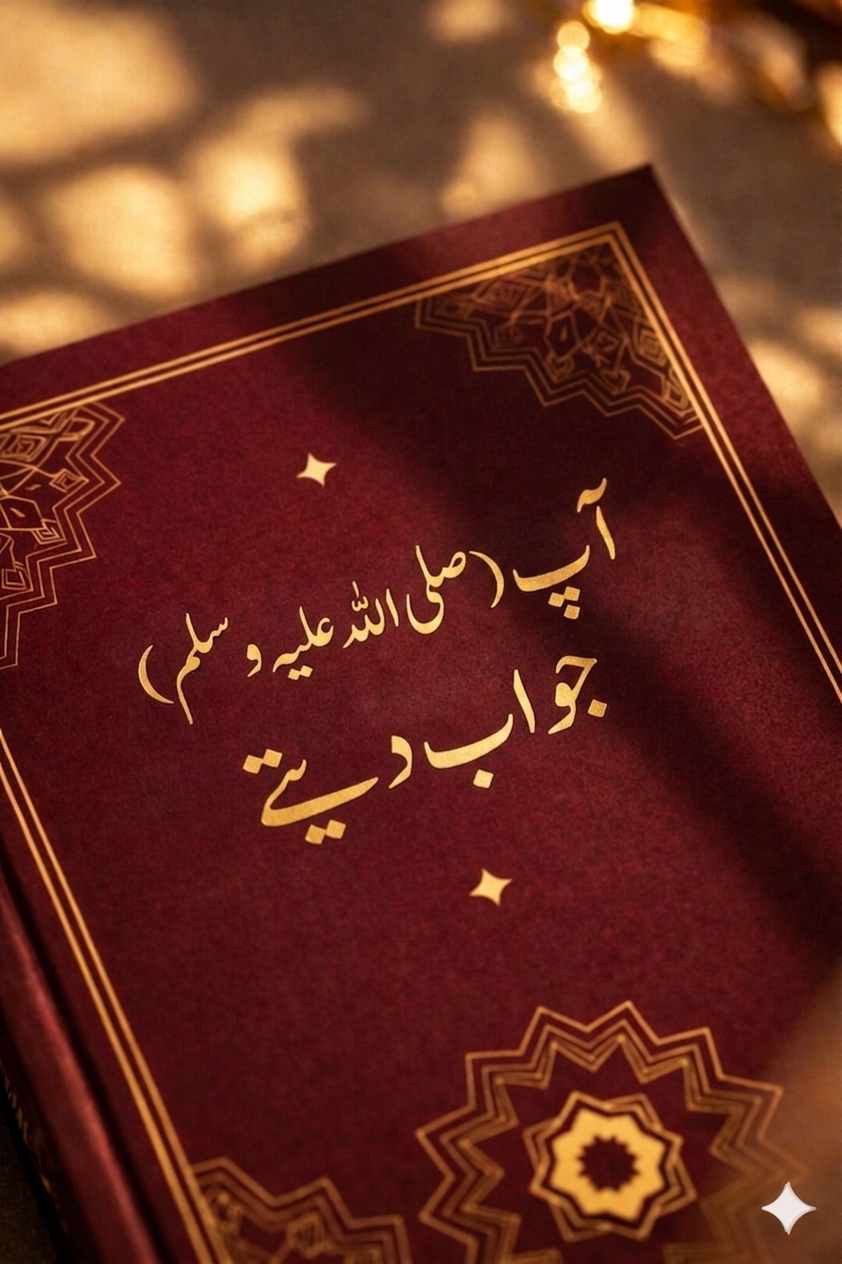 آپ (صلی اللہ علیہ و سلم)
جواب دیتے